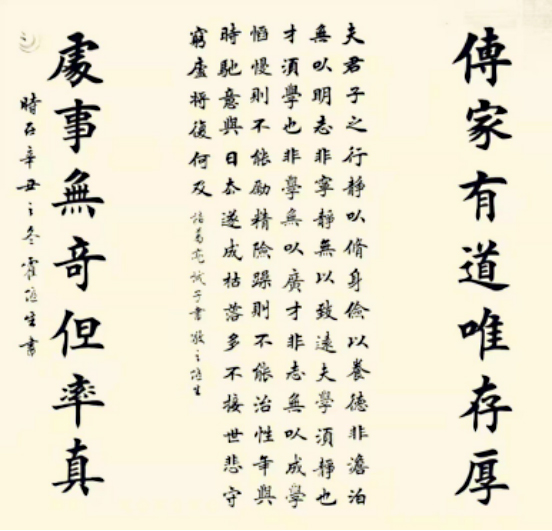 傳家有道唯存厚
夫君子之行靜以脩身儉以養德非澹泊
無以明志非寧靜無以致遠夫學須靜也
才須學也非學無以廣才非志無以成學
慆慢則不能励精險躁則不能治性年與
時馳意與日去遂成枯落多不接世悲守
窮廬將復何及 諸葛亮誡子書 生
處事無奇但率真
時在辛丑之冬霍恒生書